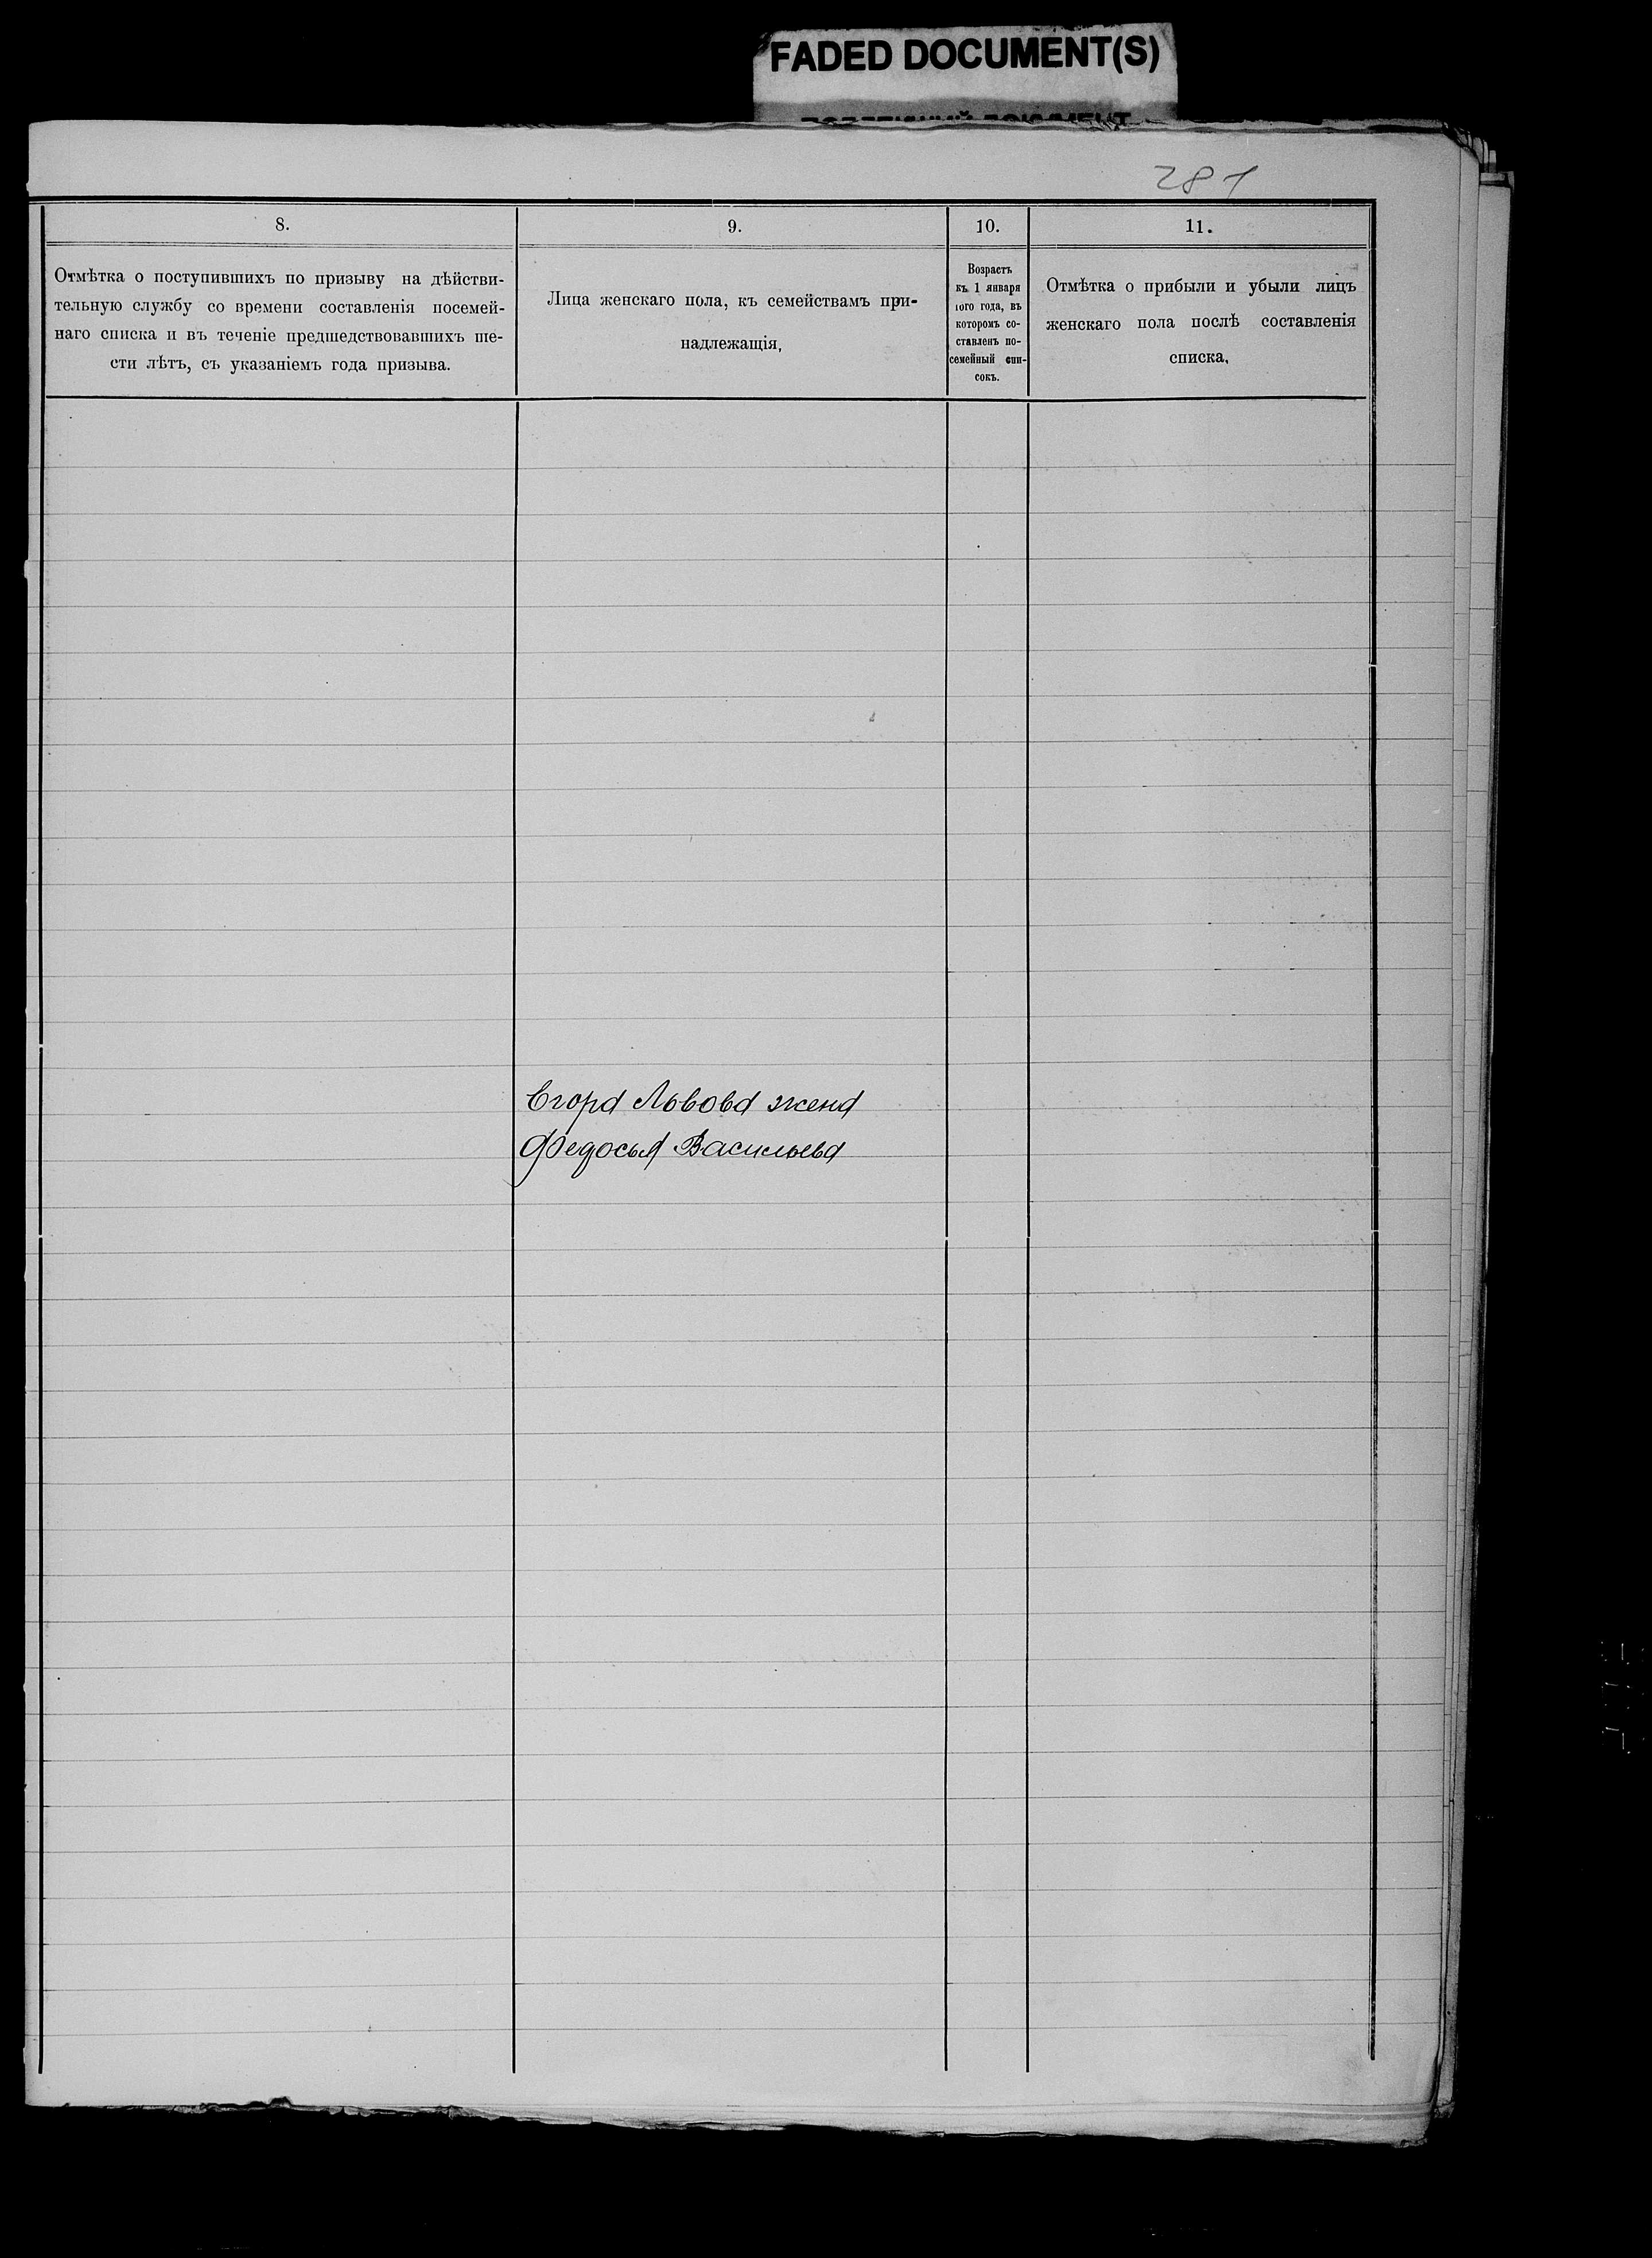 FADED DOCUMENT(S)
281
8.
9.
10.
11.
Отмѣтка о поступившихъ по призыву на дѣйстви-
тельную службу со времени составленія посемей-
наго списка и въ теченіе предшедствовавшихъ ше-
сти лѣтъ, съ указаніемъ года призыва.
Лица женскаго пола, къ семействамъ при-
надлежащія,
Возрастъ
къ 1 января
того года, въ
которомъ со-
ставленъ по-
семейный спи-
сокъ.
Отмѣтка о прибыли и убыли лицъ
женскаго пола послѣ составленія
списка,
Егора Львова жена
Федосья Васильева